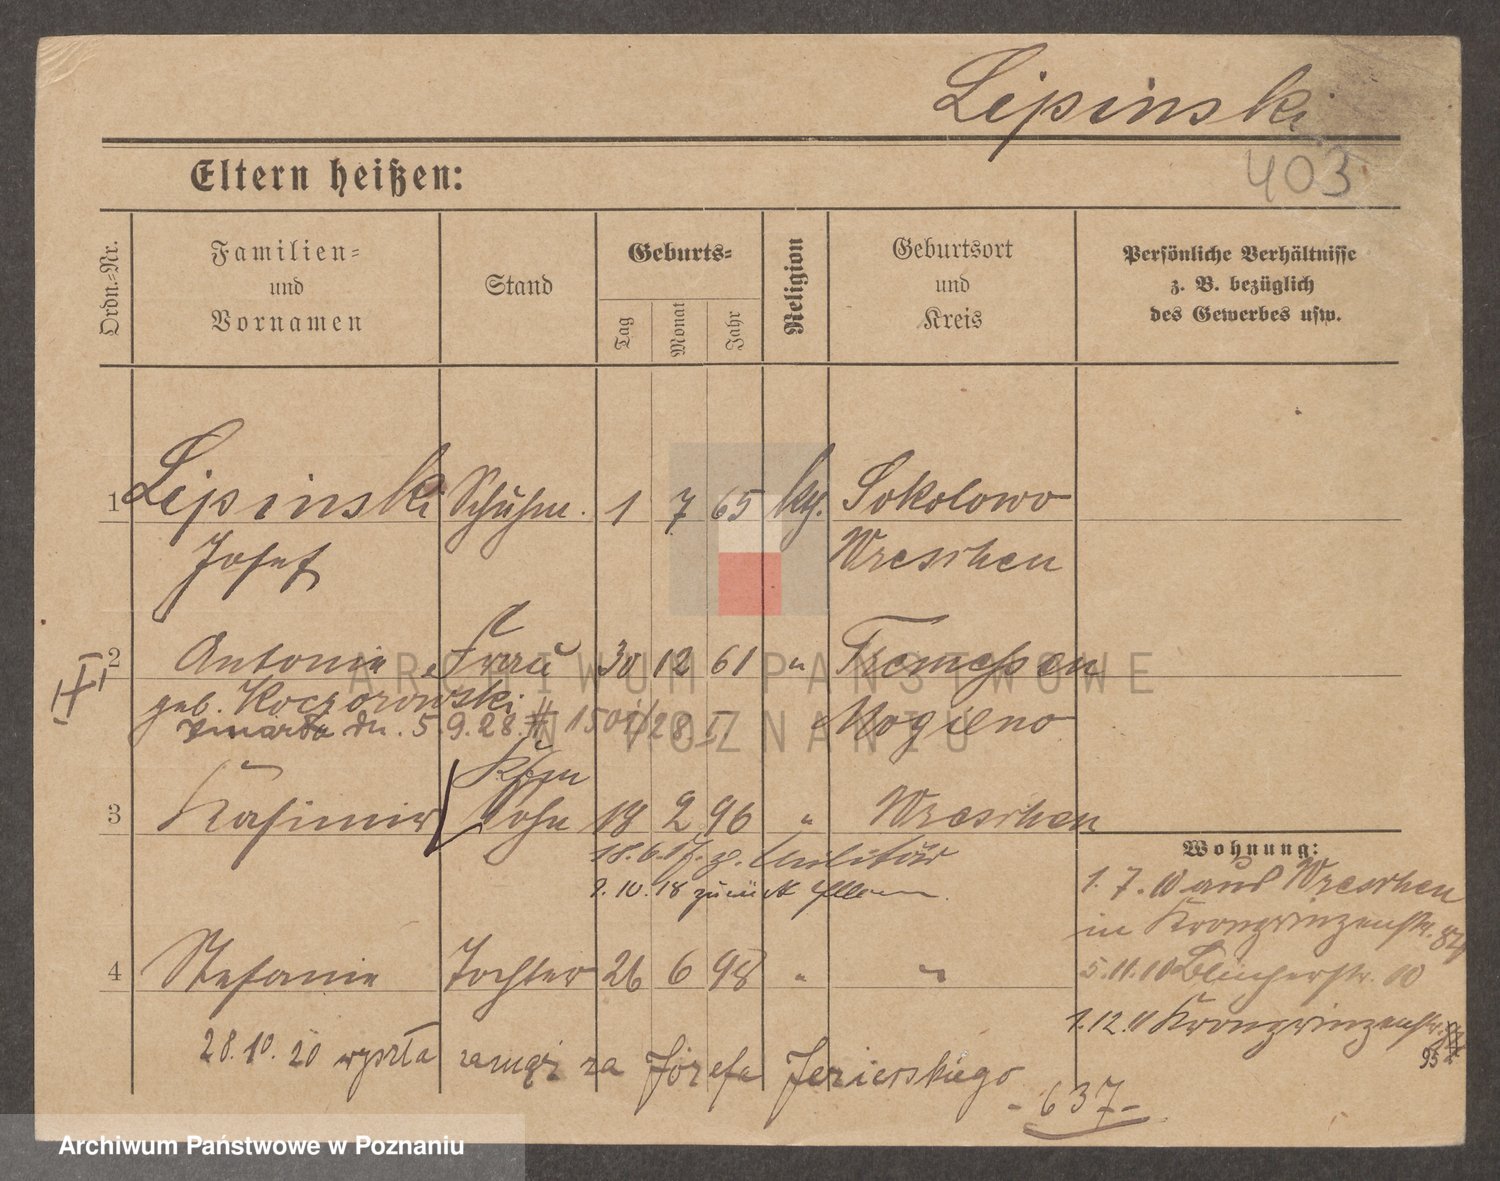 Lipinski
403
Eltern heißen:
Ordn.-Nr.
Familien-
und
Vornamen
Stand
Geburts-
Tag
Monat
Jahr
Religion
Geburtsort
und
Kreis
Persönliche Verhältnisse
z. B. bezüglich
des Gewerbes usw.
1 Lipinski Schuhm. 1 7 65 kth. Sokolowo
Josef Wreschen
2 Antonie Frau 30 12 61 " Tremessen
geb. Koczorowski Mogilno
zmarła dn. 5.9.28.
Kfm
3 Kasimir Sohn 18 2 96 " Wreschen
18.6.17. z. Militär
1.10.18 zurück
Wohnung:
1.7.10 aus Wreschen
in Kronprinzenstr.
4 Stefanie Tochter 26 6 98 " "
5.11.10 Blücherstr. 10
1.12.11 Kronprinzenstr.
95
28.10.20 wyszła zamąż za Józefa Jezierskiego
- 637 -
ARCHIWUM PAŃSTWOWE
W POZNANIU
Archiwum Państwowe w Poznaniu